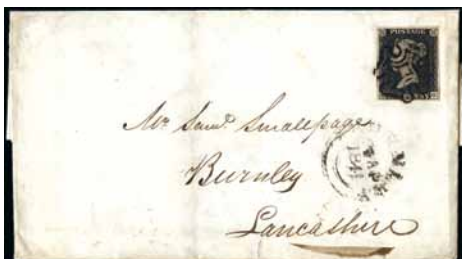 POSTAGE
Mr Saml. Smallpage
Burnley
Lancashire
1841